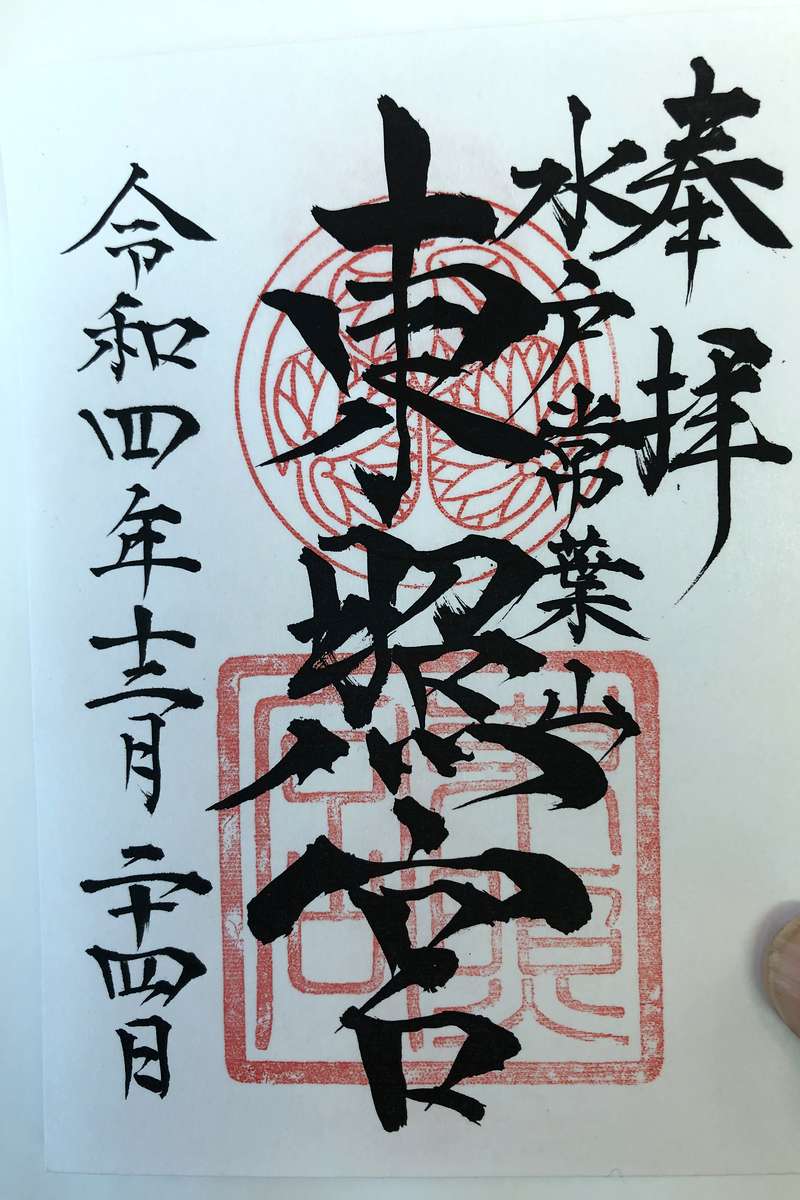 奉拝
水戸常葉山
東照宮
令和四年十二月二十四日
東照宮